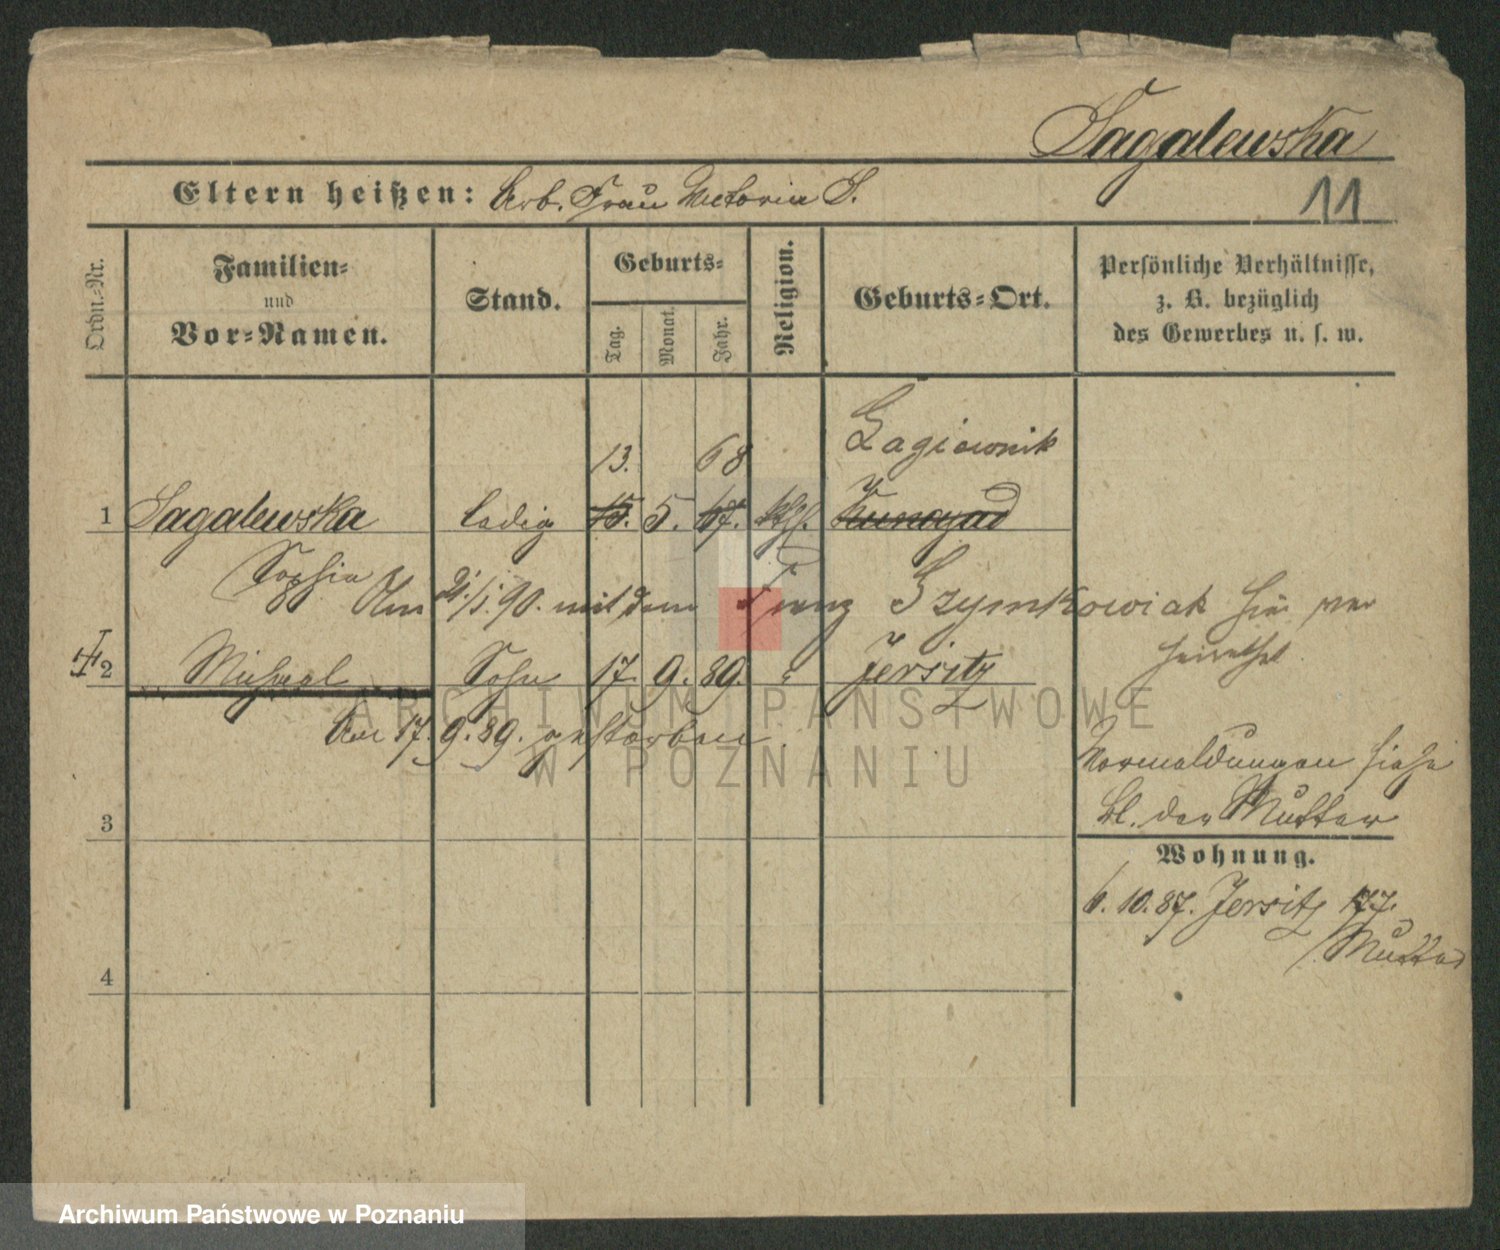 Sagalewska
Eltern heißen: Arb. Frau Victoria S.
11
Ordn.-Nr.
Familien-
und
Vor-Namen.
Stand.
Geburts-
Tag.
Monat.
Jahr.
Religion.
Geburts-Ort.
Persönliche Verhältnisse,
z. B. bezüglich
des Gewerbes u. s. w.
13. 68 Lagiewnik
1 Sagalewska ledig 15. 5. 67. kth.
Sophia
Am 21/1. 90. mit dem Franz Szymkowiak hier ver
heirathet
2 Michael Sohn 17. 9. 89. " Jersitz
Am 17. 9. 89. gestorben.
Vormeldungen siehe
bl. der Mutter
3
Wohnung.
6. 10. 87. Jersitz 177.
Mutter
4
ARCHIWUM PAŃSTWOWE
W POZNANIU
Archiwum Państwowe w Poznaniu